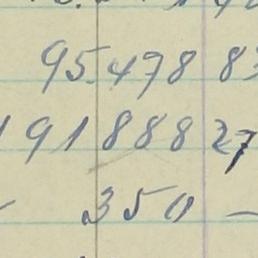 95.478 83
191888 27
350 —